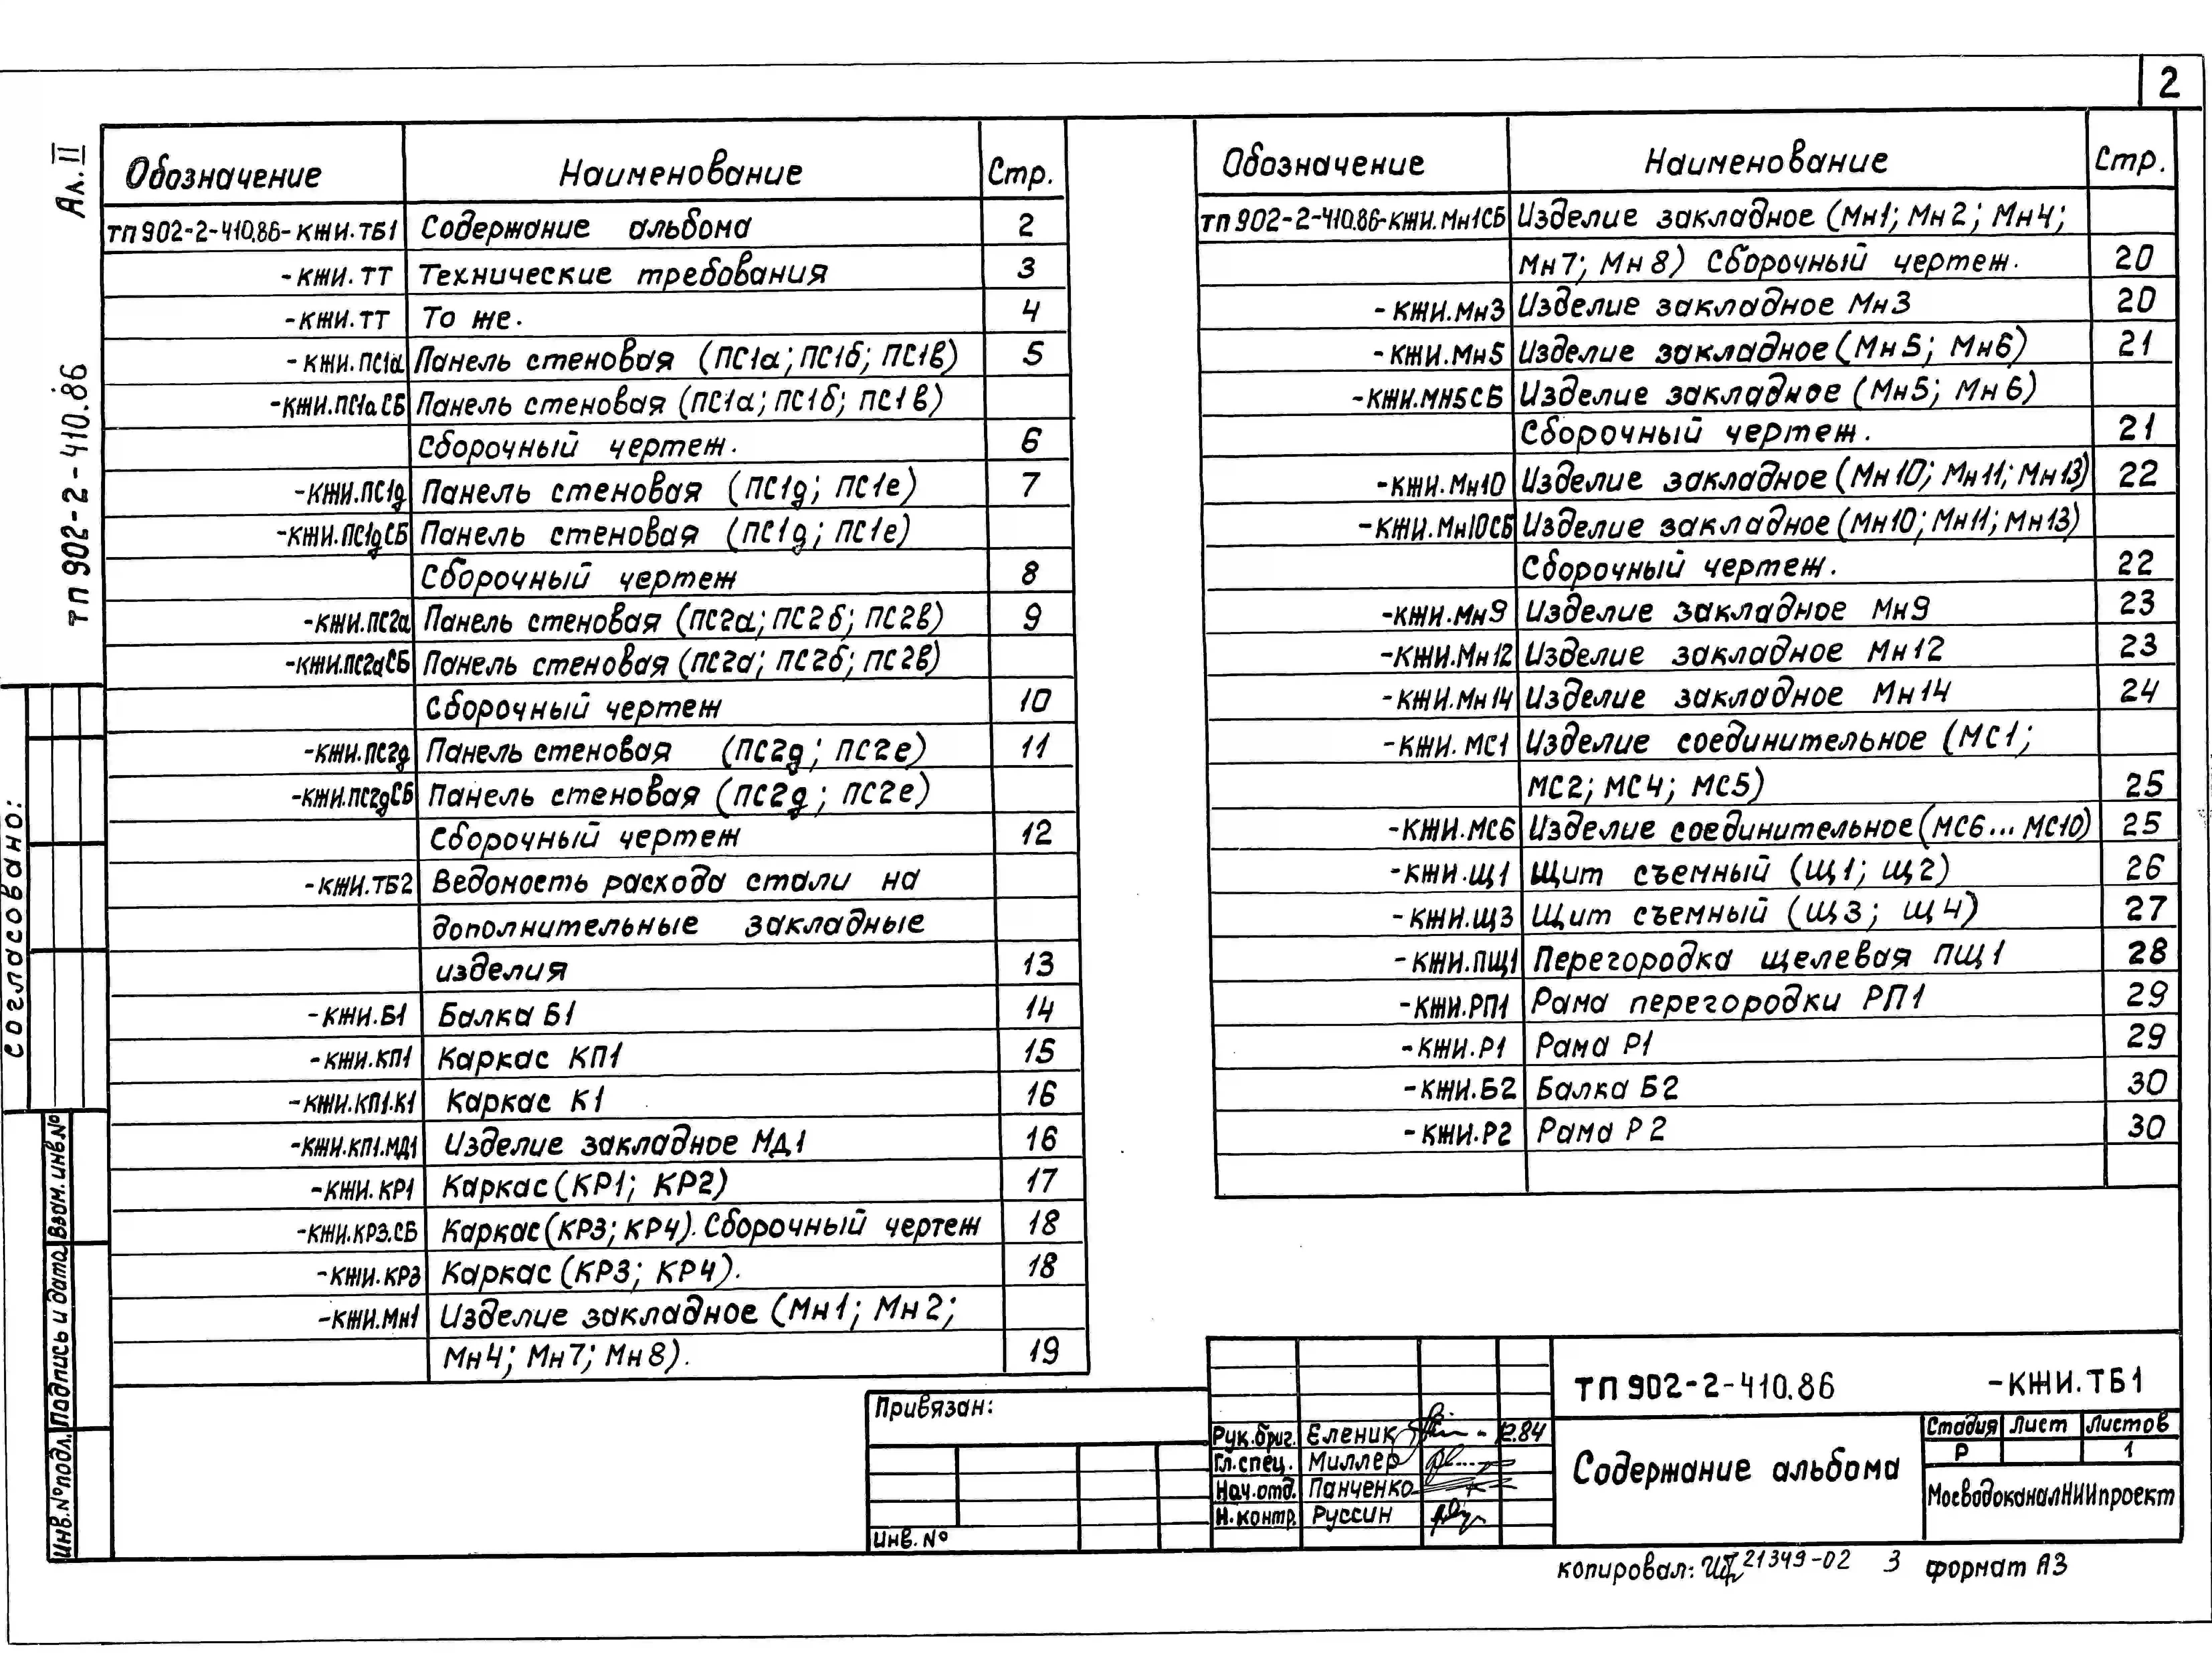 2
Ал. II
тп 902-2-410.86
Обозначение Наименование Стр.
тп 902-2-410.86-КЖИ.ТБ1 Содержание альбома 2
-КЖИ.ТТ Технические требования 3
-КЖИ.ТТ То же. 4
-КЖИ.ПС1а Панель стеновая (ПС1а; ПС1б; ПС1в) 5
-КЖИ.ПС1аСБ Панель стеновая (ПС1а; ПС1б; ПС1в)
Сборочный чертеж. 6
-КЖИ.ПС1д Панель стеновая (ПС1д; ПС1е) 7
-КЖИ.ПС1дСБ Панель стеновая (ПС1д; ПС1е)
Сборочный чертеж 8
-КЖИ.ПС2а Панель стеновая (ПС2а; ПС2б; ПС2в) 9
-КЖИ.ПС2аСБ Панель стеновая (ПС2а; ПС2б; ПС2в)
Сборочный чертеж 10
-КЖИ.ПС2д Панель стеновая (ПС2д; ПС2е) 11
-КЖИ.ПС2дСБ Панель стеновая (ПС2д; ПС2е)
Сборочный чертеж 12
-КЖИ.ТБ2 Ведомость расхода стали на
дополнительные закладные
изделия 13
-КЖИ.Б1 Балка Б1 14
-КЖИ.КП1 Каркас КП1 15
-КЖИ.КП1.К1 Каркас К1 16
-КЖИ.КП1.МД1 Изделие закладное МД1 16
-КЖИ.КР1 Каркас (КР1; КР2) 17
-КЖИ.КР3.СБ Каркас (КР3; КР4). Сборочный чертеж 18
-КЖИ.КР3 Каркас (КР3; КР4). 18
-КЖИ.Мн1 Изделие закладное (Мн1; Мн2;
Мн4; Мн7; Мн8). 19
Обозначение Наименование Стр.
тп 902-2-410.86-КЖИ.Мн1СБ Изделие закладное (Мн1; Мн2; Мн4;
Мн7; Мн8) Сборочный чертеж. 20
-КЖИ.Мн3 Изделие закладное Мн3 20
-КЖИ.Мн5 Изделие закладное (Мн5; Мн6) 21
-КЖИ.МН5СБ Изделие закладное (Мн5; Мн6)
Сборочный чертеж. 21
-КЖИ.Мн10 Изделие закладное (Мн10; Мн11; Мн13) 22
-КЖИ.Мн10СБ Изделие закладное (Мн10; Мн11; Мн13)
Сборочный чертеж. 22
-КЖИ.Мн9 Изделие закладное Мн9 23
-КЖИ.Мн12 Изделие закладное Мн12 23
-КЖИ.Мн14 Изделие закладное Мн14 24
-КЖИ.МС1 Изделие соединительное (МС1;
МС2; МС4; МС5) 25
-КЖИ.МС6 Изделие соединительное (МС6...МС10) 25
-КЖИ.Щ1 Щит съемный (Щ1; Щ2) 26
-КЖИ.Щ3 Щит съемный (Щ3; Щ4) 27
-КЖИ.ПЩ1 Перегородка щелевая ПЩ1 28
-КЖИ.РП1 Рама перегородки РП1 29
-КЖИ.Р1 Рама Р1 29
-КЖИ.Б2 Балка Б2 30
-КЖИ.Р2 Рама Р2 30
Согласовано:
Взам. инв. №
Подпись и дата
Инв. № подл.
Привязан:
Инв. №
Рук. бриг. Еленик 12.84
Гл. спец. Миллер
Нач. отд. Панченко
Н. контр. Руссин
ТП 902-2-410.86 -КЖИ.ТБ1
Содержание альбома
Стадия Лист Листов
Р 1
МосводоканалНИИпроект
копировал: 21349-02 3 формат А3